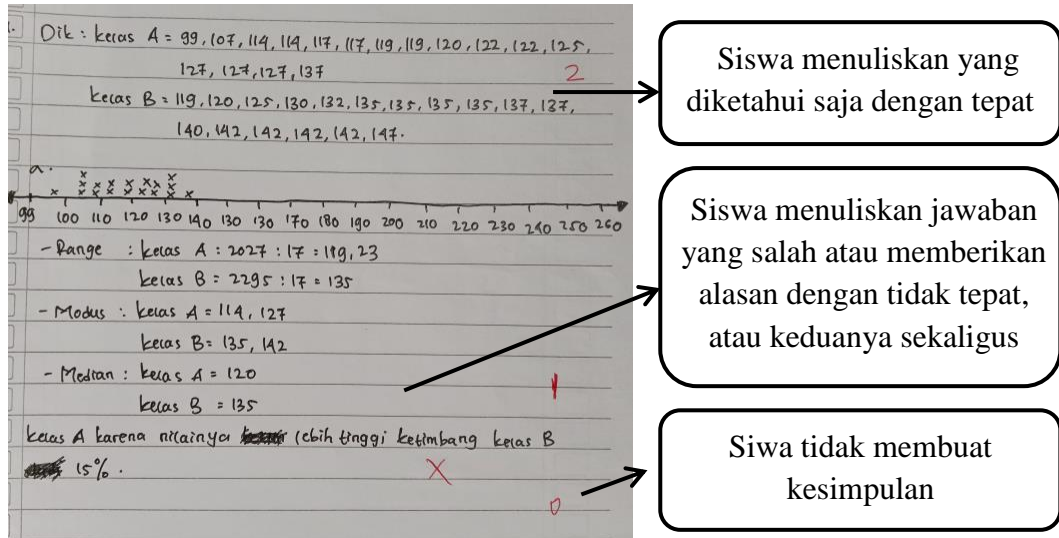 Dik : kelas A = 99, 107, 114, 114, 117, 117, 119, 119, 120, 122, 122, 125,
127, 127, 127, 137
2
kelas B = 119, 120, 125, 130, 132, 135, 135, 135, 135, 137, 137,
140, 142, 142, 142, 142, 147.
a.
99 100 110 120 130 140 130 130 170 180 190 200 210 220 230 240 250 260
- Range : kelas A : 2027 : 17 = 119,23
kelas B = 2295 : 17 = 135
- Modus : kelas A = 114, 127
kelas B = 135, 142
- Median : kelas A = 120
kelas B = 135
1
kelas A karena nilainya lebih tinggi ketimbang kelas B
15%.
X
0
Siswa menuliskan yang
diketahui saja dengan tepat
Siswa menuliskan jawaban
yang salah atau memberikan
alasan dengan tidak tepat,
atau keduanya sekaligus
Siwa tidak membuat
kesimpulan